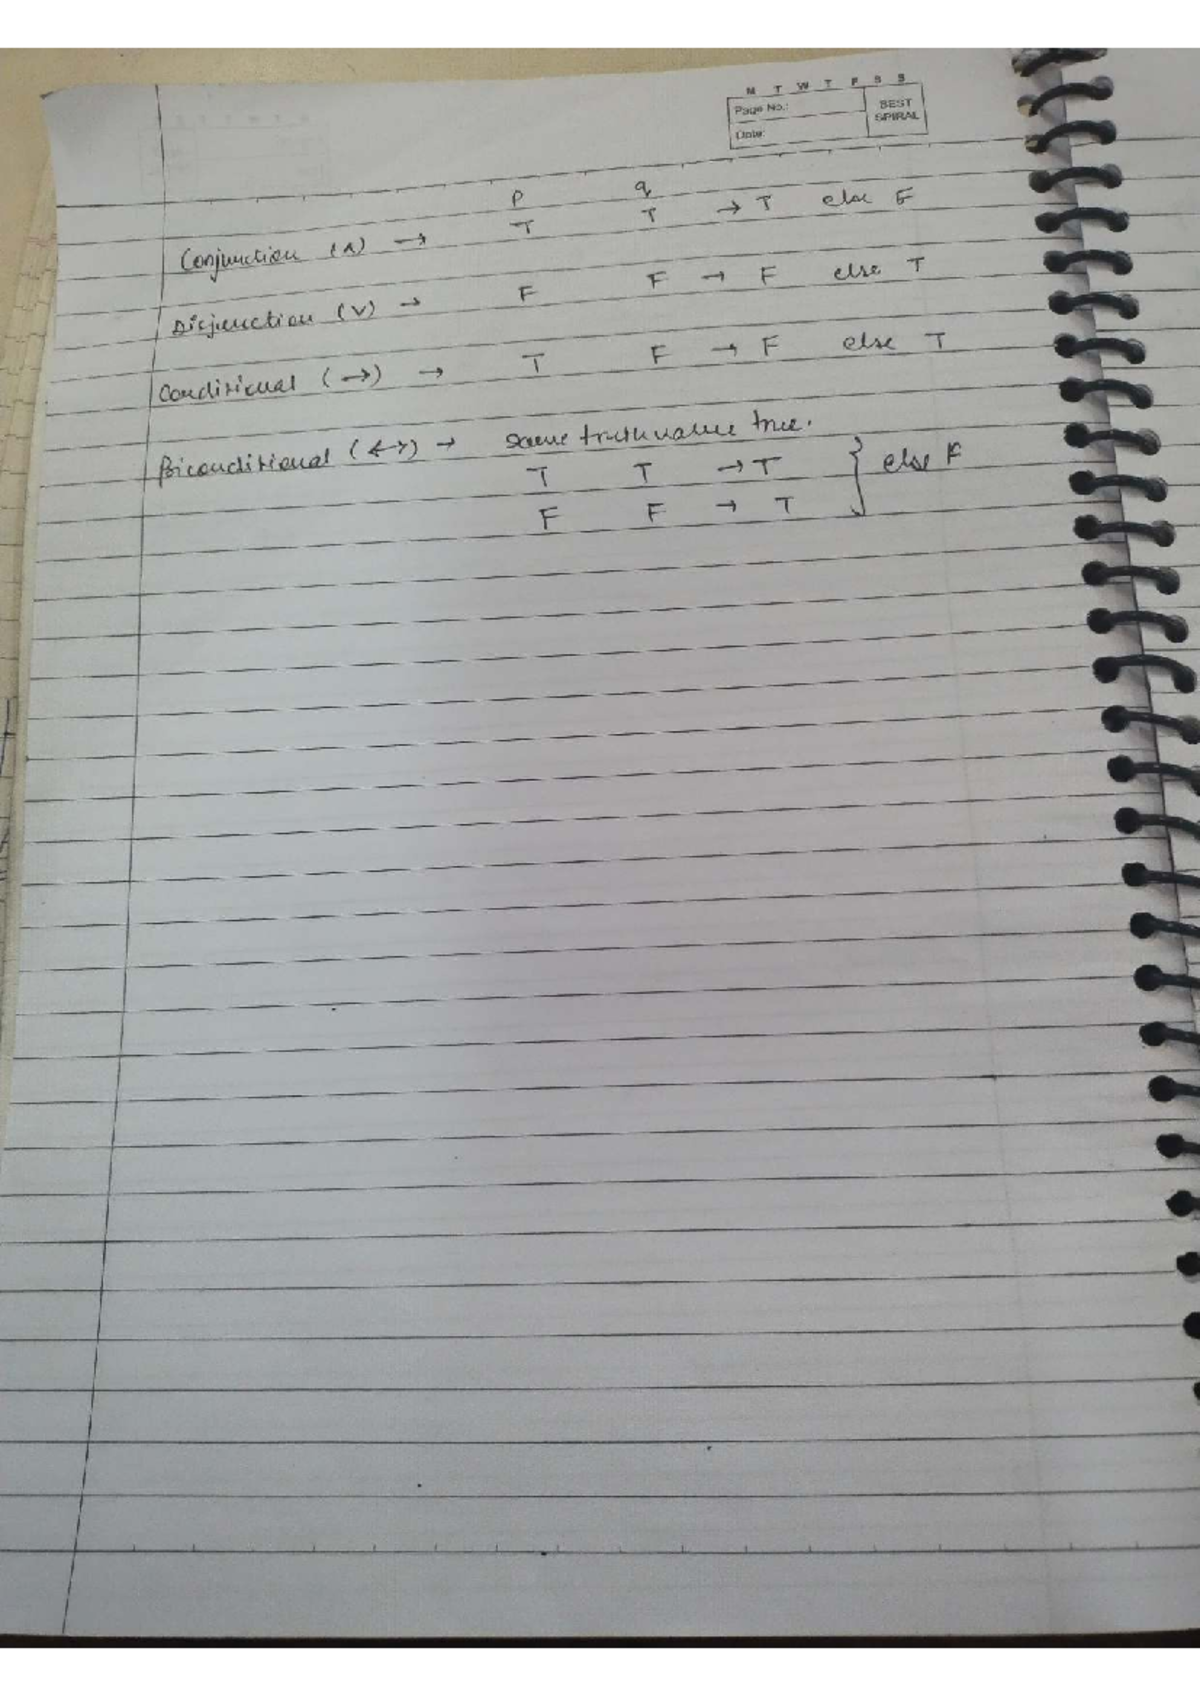 M T W T F S S
Page No.:
Date:
BEST
SPIRAL
p q
Conjunction (∧) → T T → T else F
Disjunction (∨) → F F → F else T
Conditional (→) → T F → F else T
Biconditional (↔) → same truth value true.
T T → T } else F
F F → T